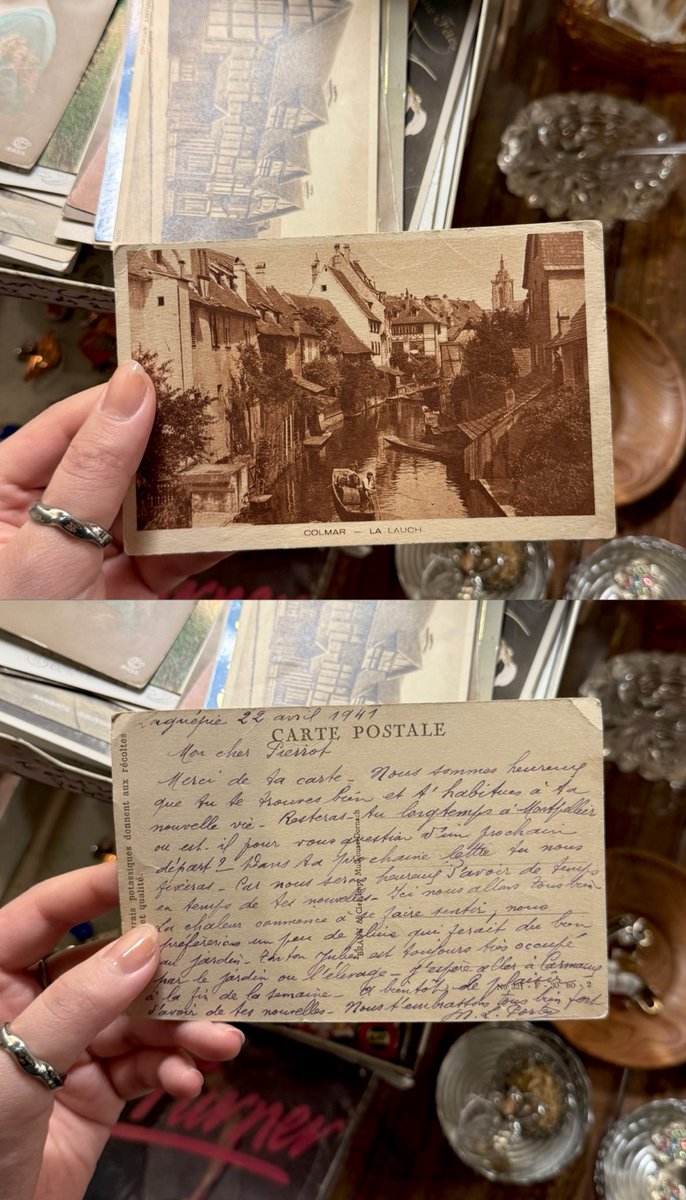 COLMAR — LA LAUCH
Laguépie 22 avril 1941
CARTE POSTALE
Mon cher Pierrot
Merci de ta carte - Nous sommes heureux
que tu te trouves bien et t'habitues à ta
nouvelle vie - Resteras-tu longtemps à Montpellier
ou est-il pour vous question d'un prochain
départ? Dans ta prochaine lettre tu nous
fixeras - Car nous serons heureux d'avoir de temps
en temps de tes nouvelles - Ici nous allons tous bien -
La chaleur commence à se faire sentir, nous
préfèrerions un peu de pluie qui ferait du bien
au jardin - Tonton Julien est toujours très occupé
par le jardin ou l'élevage - J'espère aller à Carmaux
à la fin de la semaine - A bientôt de plaisir
d'avoir de tes nouvelles - Nous t'embrassons tous bien fort
rais potassiques donnent aux récoltes
et qualité.
BRAUN & Cie
Turner